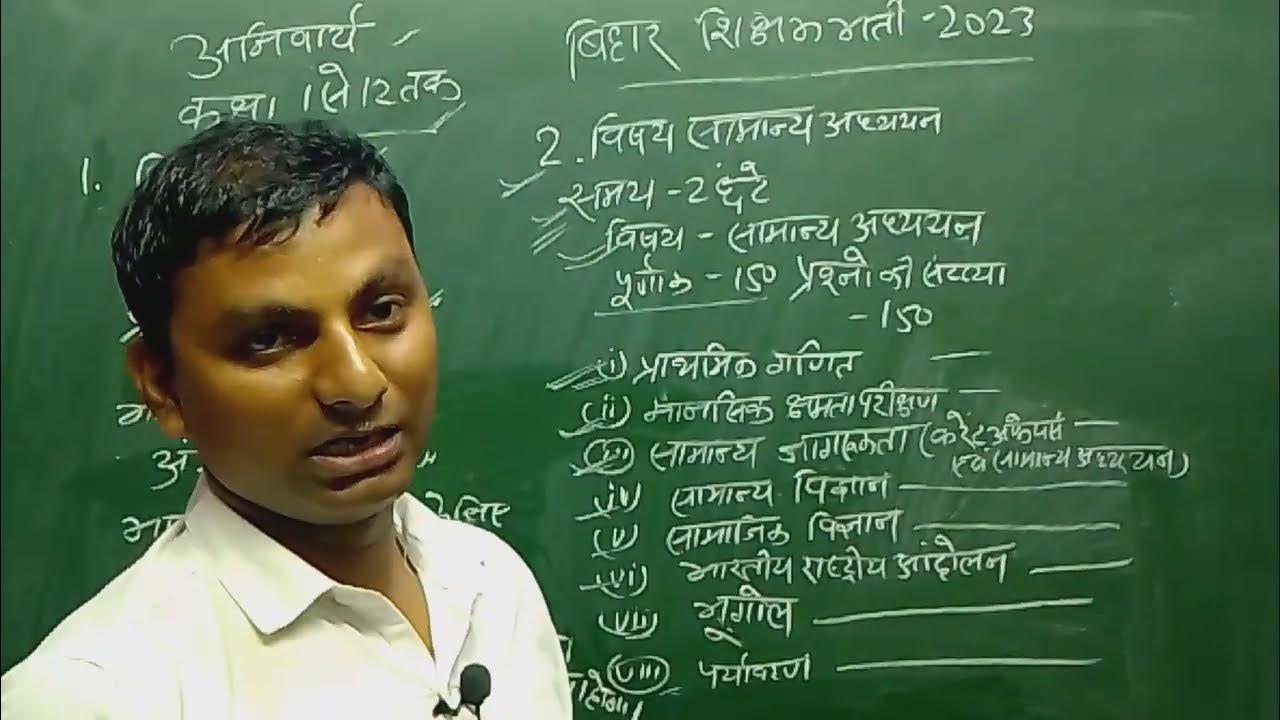 अनिवार्य
कक्षा 1 से 12 तक
1.
लिए
होगा।
बिहार शिक्षक भर्ती -2023
2. विषय सामान्य अध्ययन
समय -2 घंटे
विषय - सामान्य अध्ययन
पूर्णांक - 150 प्रश्नो की संख्या
- 150
(i) प्राथमिक गणित
(ii) मानसिक क्षमता परीक्षण
(iii) सामान्य जागरूकता (करेंट अफेयर्स
एवं सामान्य अध्ययन)
(iv) सामान्य विज्ञान
(v) सामाजिक विज्ञान
(vi) भारतीय राष्ट्रीय आंदोलन
(vii) भूगोल
(viii) पर्यावरण